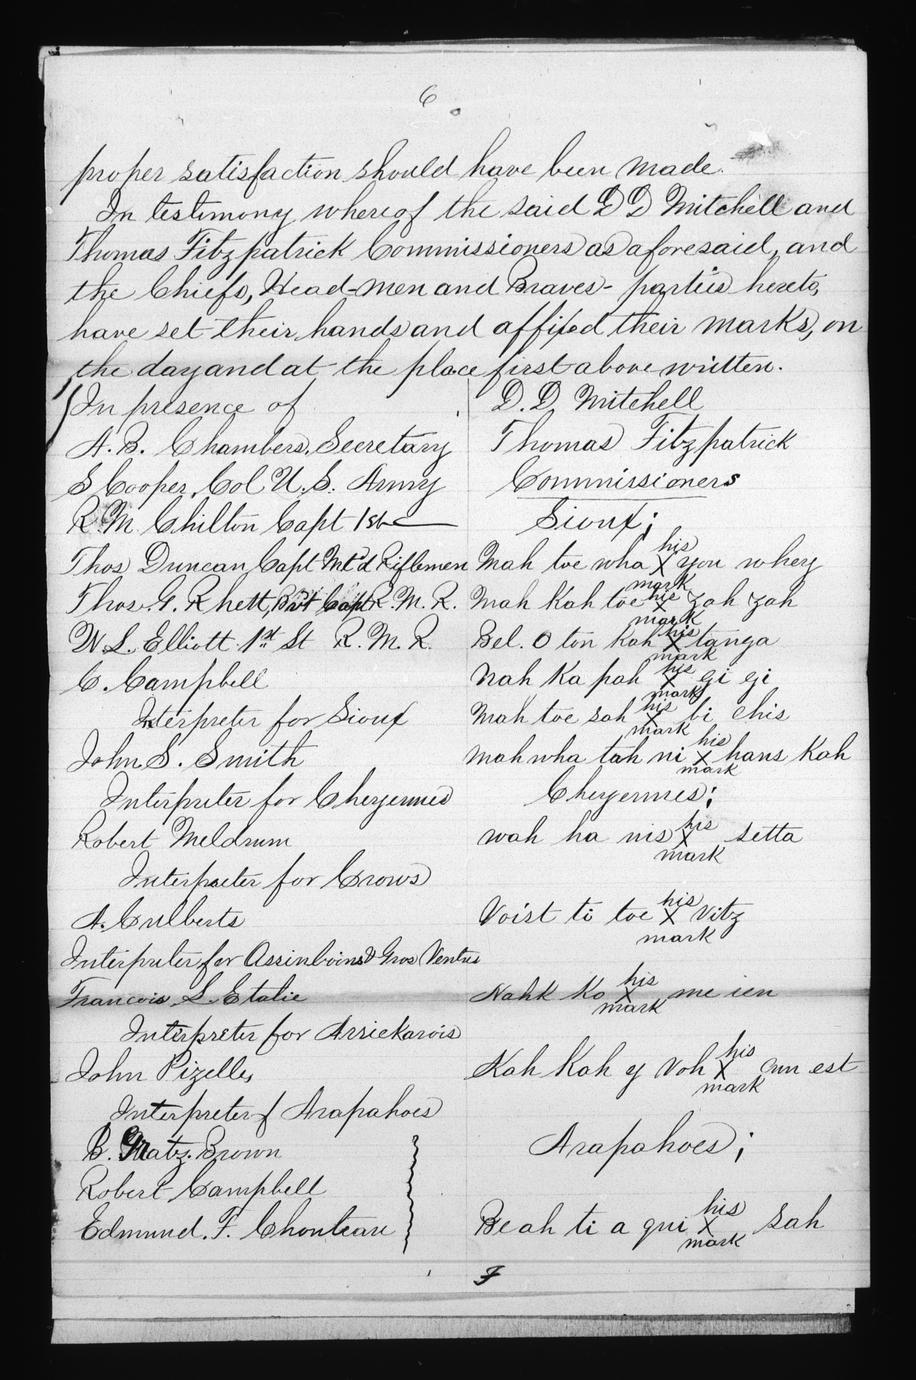 6
proper satisfaction should have been made.
In testimony whereof the said D D Mitchell and
Thomas Fitzpatrick Commissioners as aforesaid, and
the Chiefs, Head-men and Braves - parties hereto,
have set their hands and affixed their marks, on
the day and at the place first above written.
In presence of
A. B. Chambers, Secretary
S Cooper, Col U. S. Army
R. M. Chilton Capt 1st
Thos Duncan Capt Mt'd Riflemen
Thos. G. Rhett, Bvt Capt R. M. R.
W. L. Elliott 1st St R. M. R.
C. Campbell
Interpreter for Sioux
John S. Smith
Interpreter for Cheyennes
Robert Meldrum
Interpreter for Crows
A. Culberts
Interpreter for Assinboins & Gros Ventus
Francois L. Etalie
Interpreter for Arrickarois
John Pizelle,
Interpreter f Arapahoes
B. Gratz. Brown
Robert Campbell
Edmund. F. Chouteau
D. D Mitchell
Thomas Fitzpatrick
Commissioners
Sioux;
Mah toe wha his X mark you whey
Mah kah toe his X mark zah zah
Bel. O ton kah his X mark tanga
Nah Ka pah his X mark gi gi
Mah toe sah his X mark bi chis
Mah wha tah ni his X mark hans Kah
Cheyennes;
wah ha nis his X mark setta
Voist ti toe his X mark Vitz
Nahk Ko his X mark me ien
Kah Kah y Woh his X mark cum est
Arapahoes;
Be ah ti a qui his X mark sah